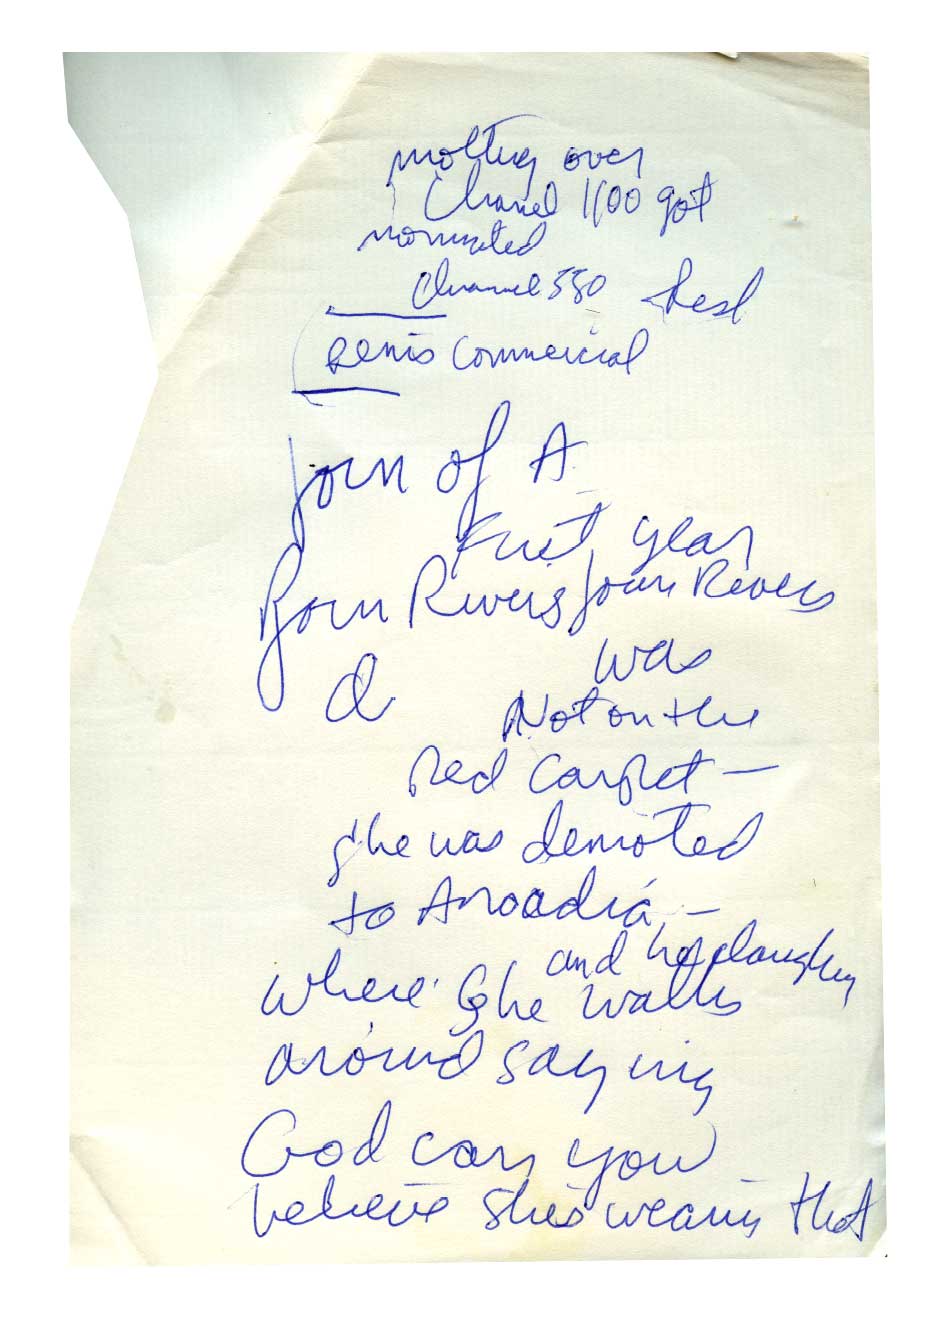 over
Chanel 1100 got
nominated
Channel 550 best
penis commercial
Joan of A
First year
Joan Rivers Joan Rivers
was
d
Not on the
red carpet —
she was demoted
to Arcadia —
and her daughter
where she walks
around saying
God can you
believe shes wearing that